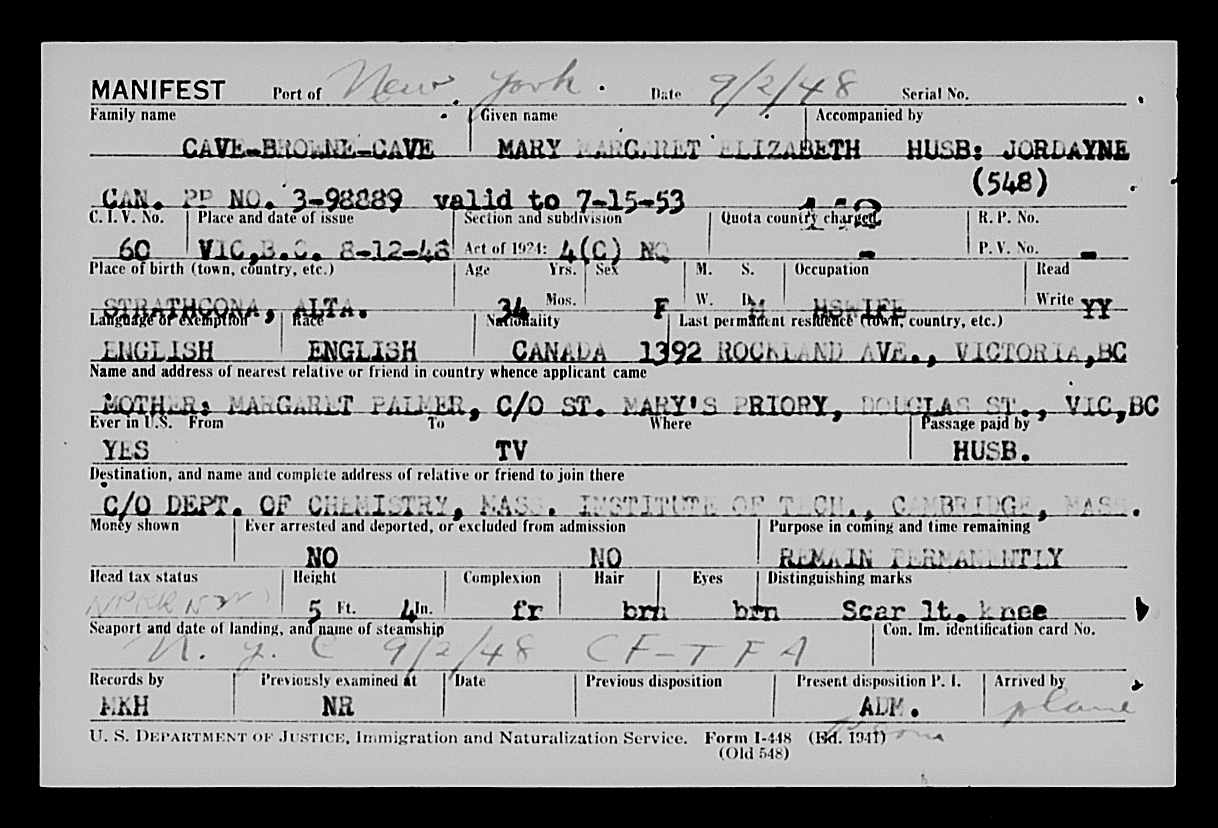 MANIFEST Port of New York. Date 9/2/48 Serial No.
Family name Given name Accompanied by
CAVE-BROWNE-CAVE MARY MARGARET ELIZABETH HUSB: JORDAYNE
(548)
CAN. PP NO. 3-98889 valid to 7-15-53
C. I. V. No. Place and date of issue Section and subdivision Quota country charged R. P. No.
60 VIC,B.C. 8-12-48 Act of 1924: 4(C) NQ - P. V. No. -
Place of birth (town, country, etc.) Age Yrs. Sex M. S. Occupation Read
STRATHCONA, ALTA. 34 Mos. F W. D. M HSWIFE Write YY
Language or exemption Race Nationality Last permanent residence (town, country, etc.)
ENGLISH ENGLISH CANADA 1392 ROCKLAND AVE., VICTORIA,BC
Name and address of nearest relative or friend in country whence applicant came
MOTHER: MARGARET PALMER, C/O ST. MARY'S PRIORY, DOUGLAS ST., VIC,BC
Ever in U.S. From To Where Passage paid by
YES TV HUSB.
Destination, and name and complete address of relative or friend to join there
C/O DEPT. OF CHEMISTRY, MASS. INSTITUTE OF TECH., CAMBRIDGE, MASS.
Money shown Ever arrested and deported, or excluded from admission Purpose in coming and time remaining
NO NO REMAIN PERMANENTLY
Head tax status Height Complexion Hair Eyes Distinguishing marks
5 Ft. 4 In. fr brn brn Scar lt. knee
Seaport and date of landing, and name of steamship Con. Im. identification card No.
N. Y. C 9/2/48 CF-TFA
Records by Previously examined at Date Previous disposition Present disposition P. I. Arrived by
MKH NR ADM. plane
U. S. DEPARTMENT OF JUSTICE, Immigration and Naturalization Service. Form I-448 (Ed. 1941)
(Old 548)